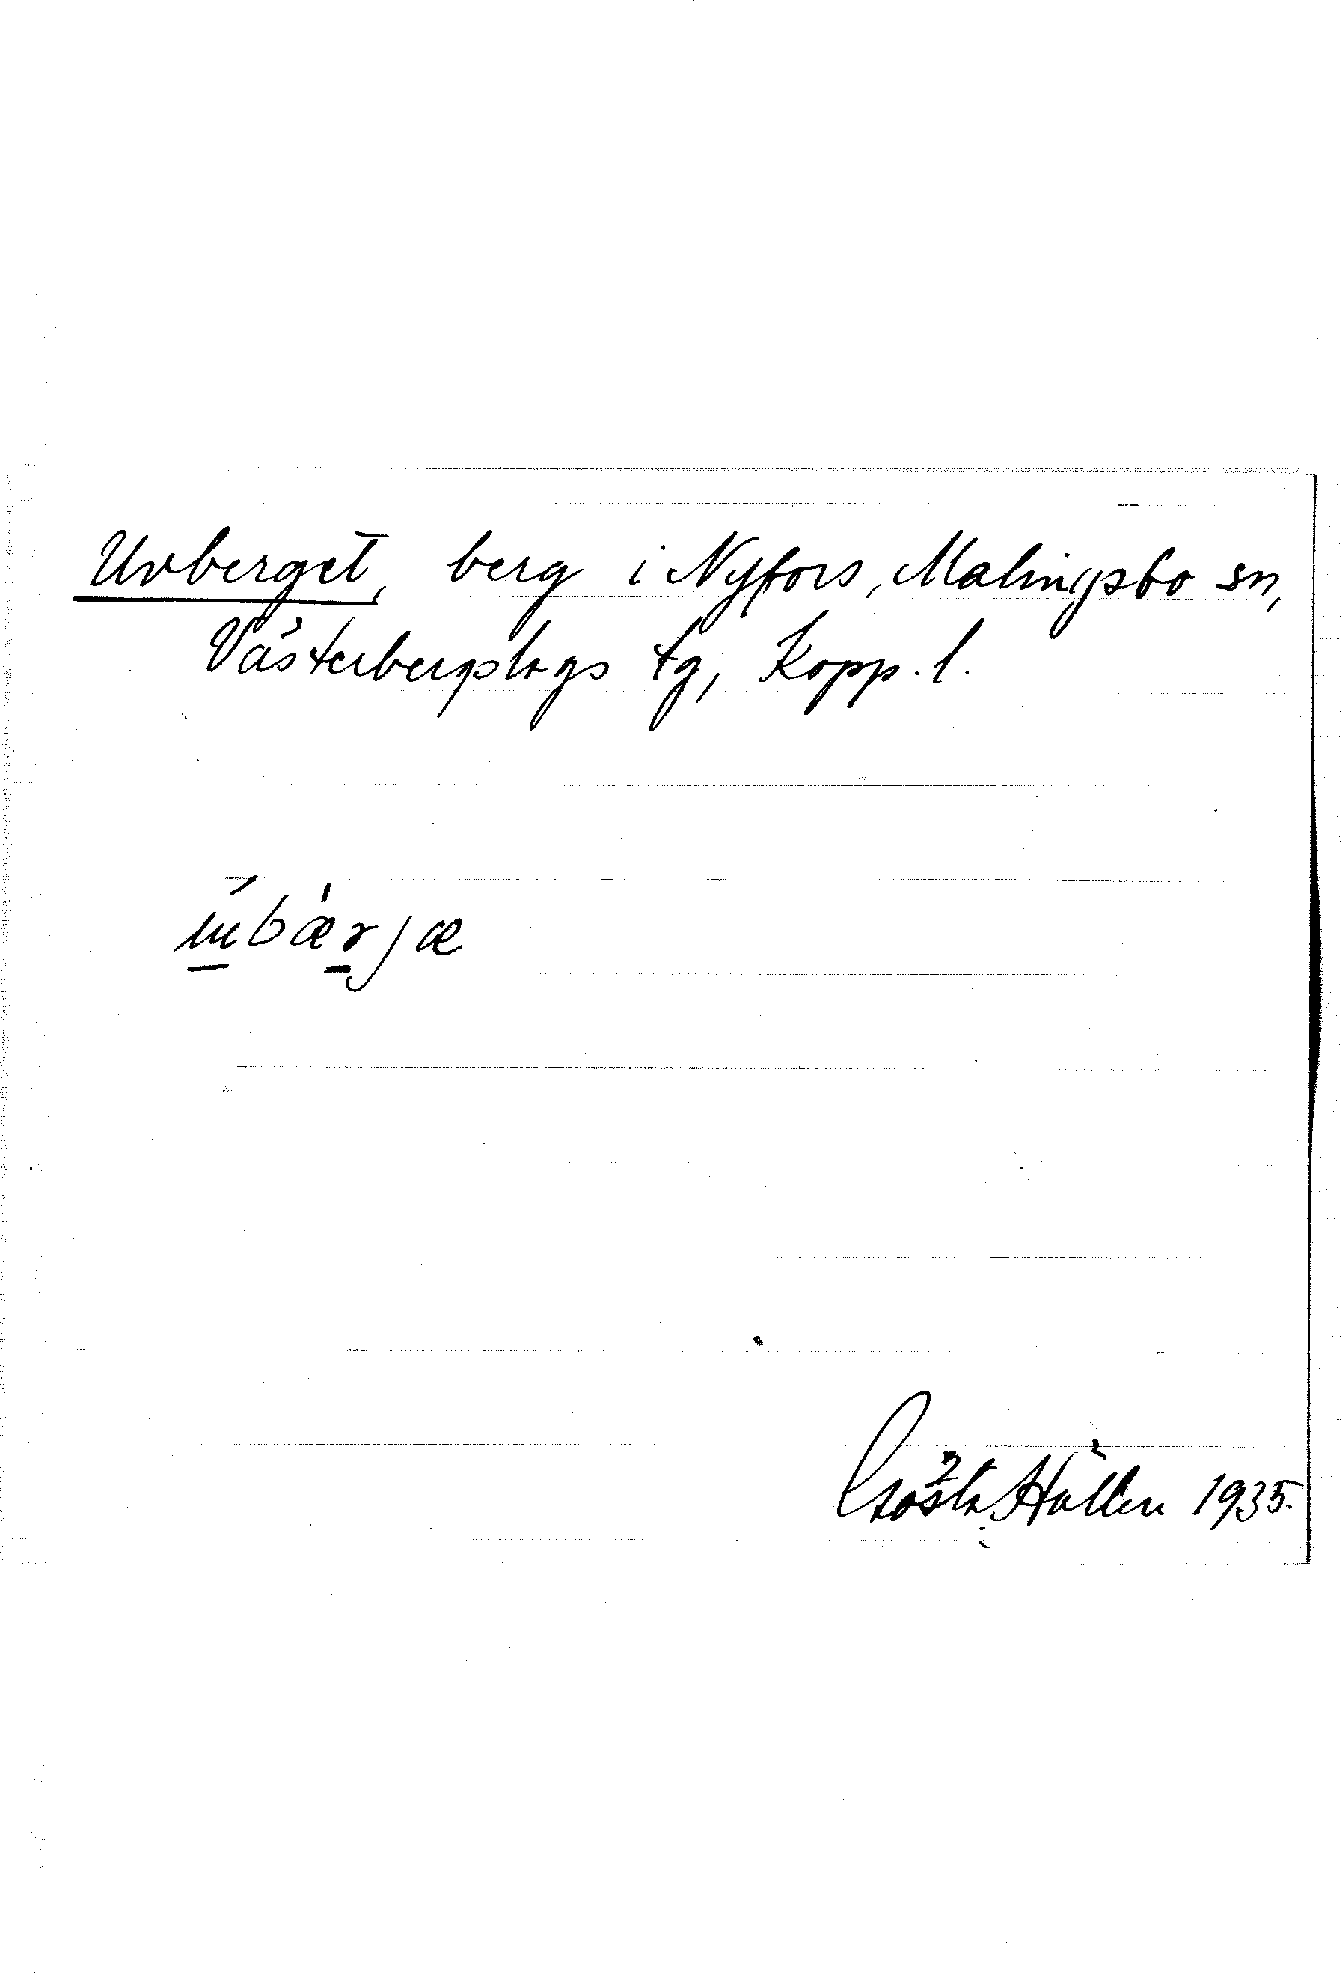 Uvberget, berg i Nyfors, Malingsbo sn,
Västerbergslags tg, Kopp. l.
ùbæ̀rjæ
Gösta Hallén 1935.